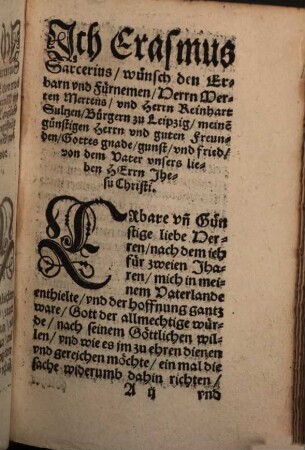 Ich Erasmus
Sarcerius / wünsch den Er-
barn vnd Fürnemen / Herrn Mer-
ten Mertens / vnd Herrn Reinhart
Sultzen / Bürgern zu Leipzig / meinē
günstigen Herrn vnd guten Freun-
den / Gottes gnade / gunst / vnd fried /
von dem Vater vnsers lie-
ben HErrn Jhe-
su Christi.
ERbare vñ Gün
stige liebe Her-
ren / nach dem ich
für zweien Jha-
ren / mich in mei-
nem Vaterlande
enthielte / vnd der hoffnung gantz
ware / Gott der allmechtige wür-
de / nach seinem Göttlichen wil-
len / vnd wie es jm zu ehren dienen
vnd gereichen möchte / ein mal die
sache widerumb dahin richten /
A ij vnd